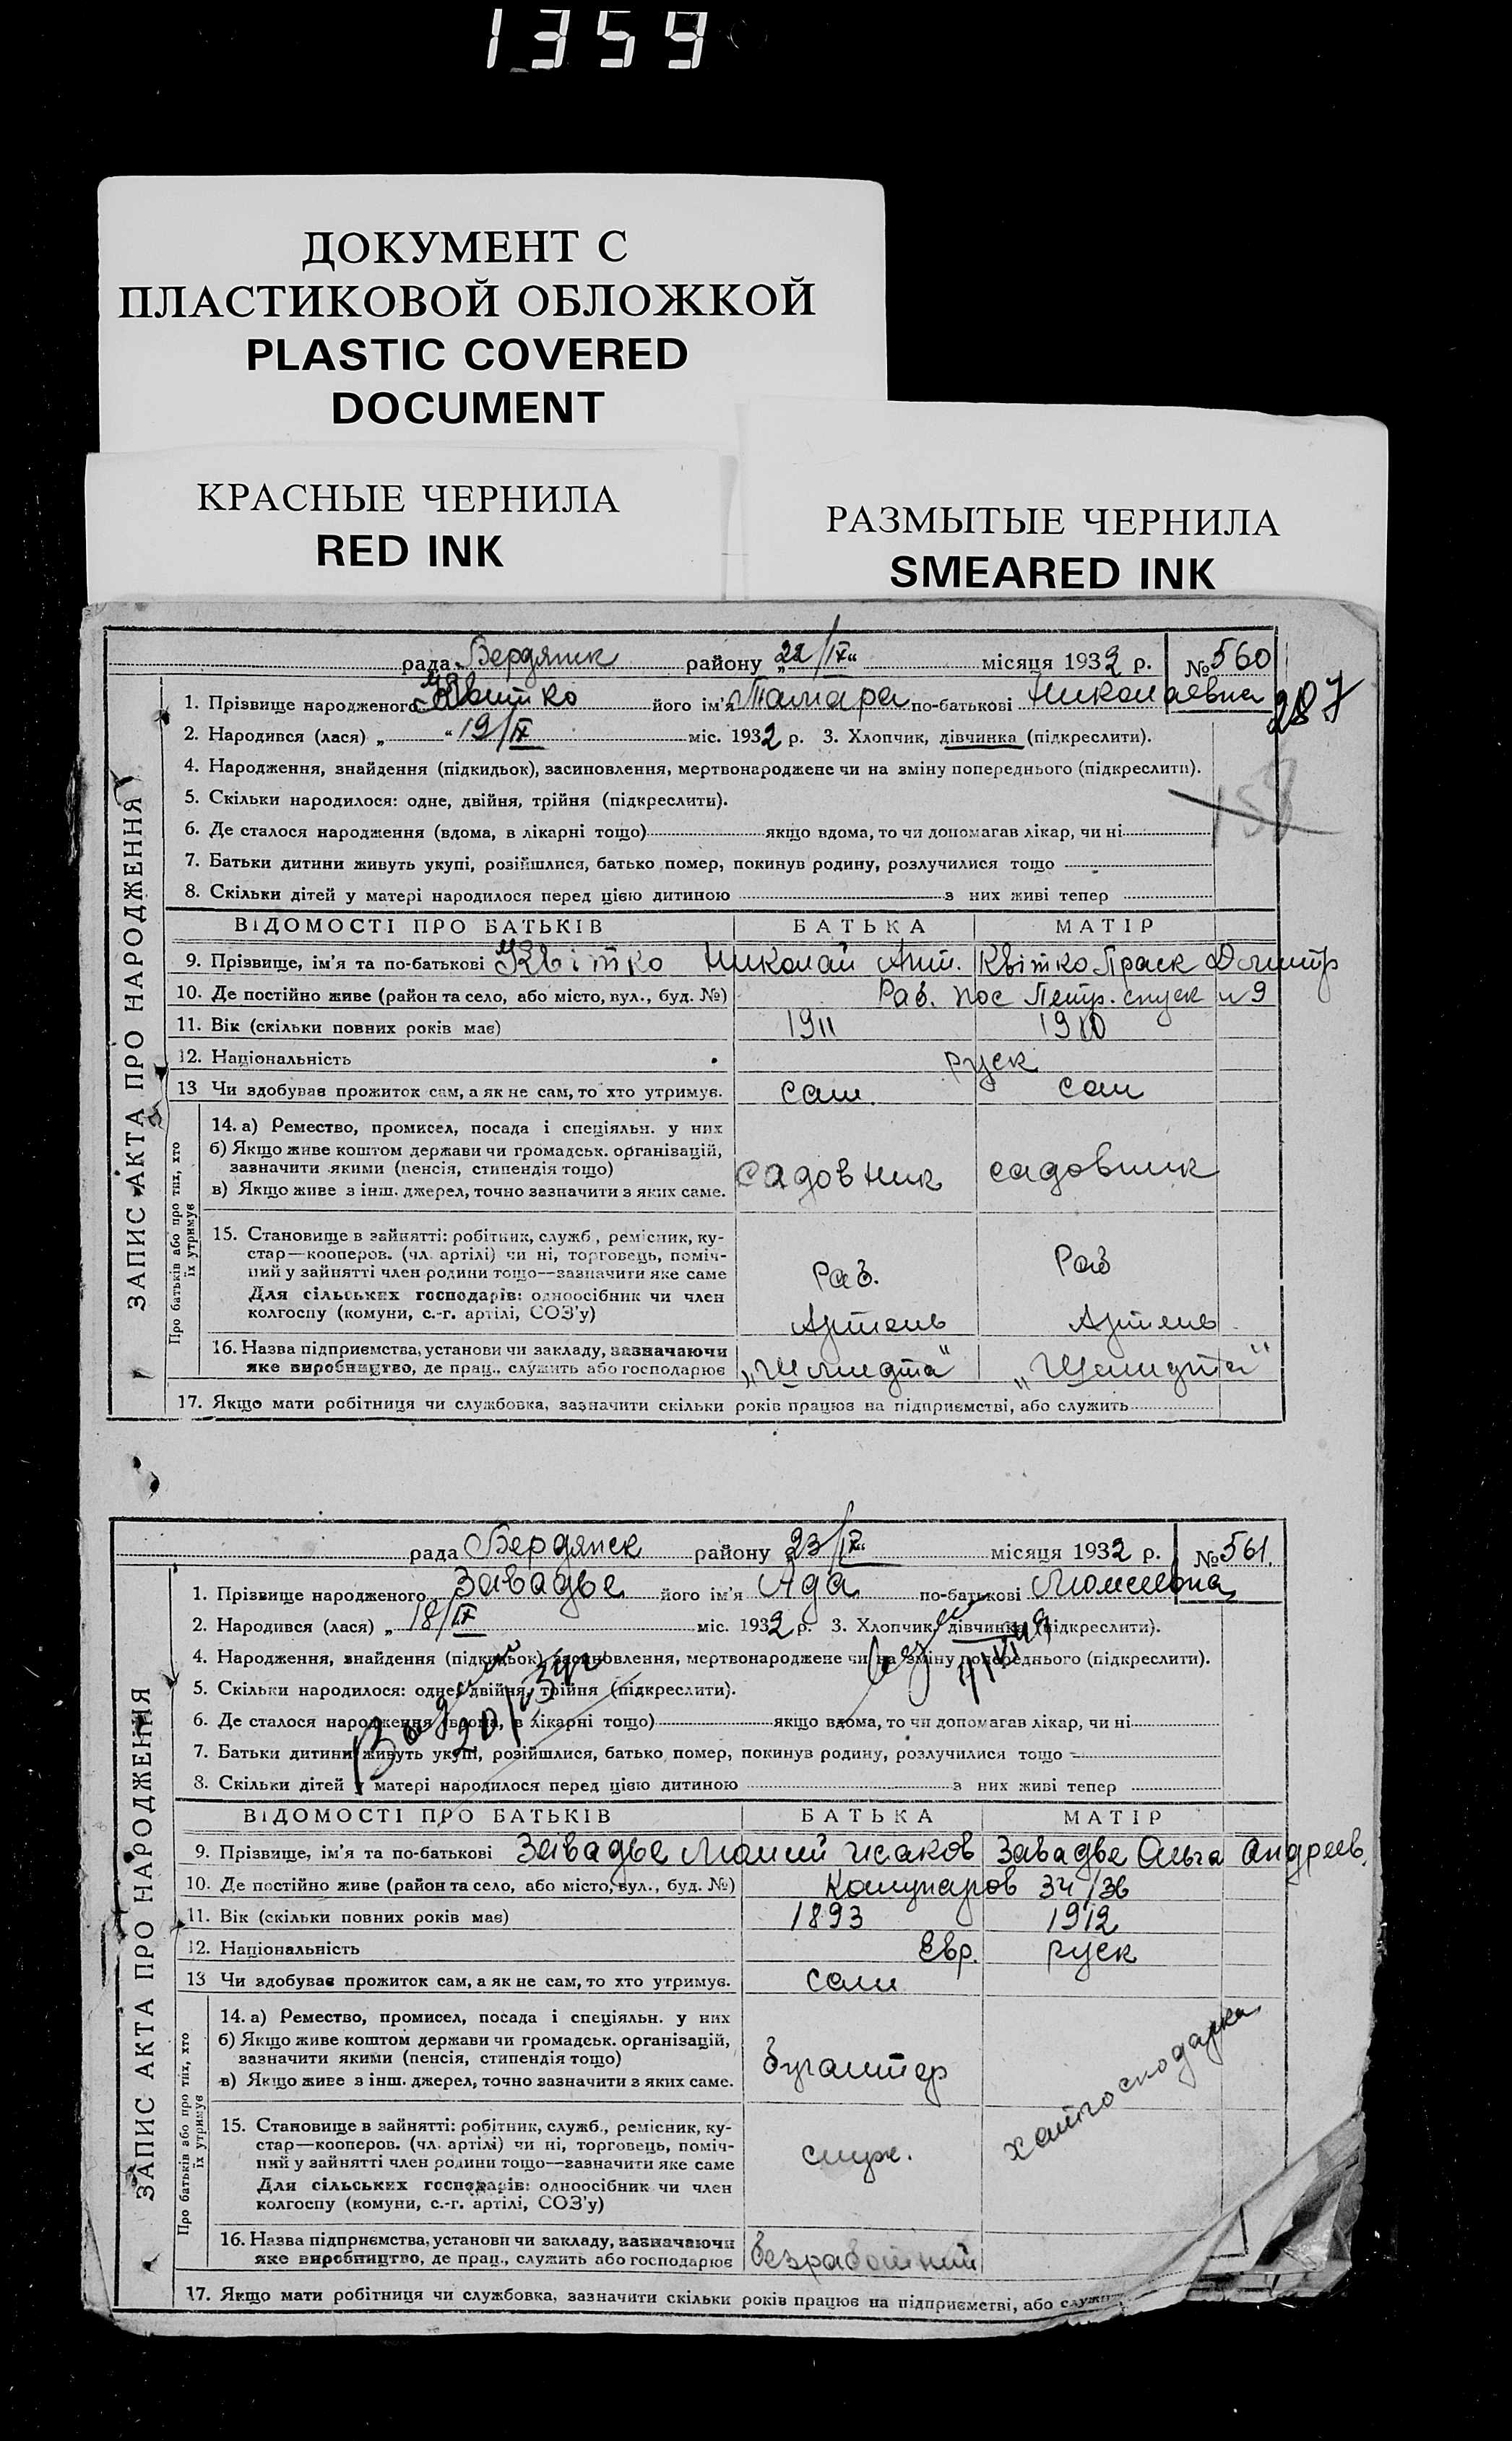 1359
ДОКУМЕНТ С
ПЛАСТИКОВОЙ ОБЛОЖКОЙ
PLASTIC COVERED
DOCUMENT
КРАСНЫЕ ЧЕРНИЛА
RED INK
РАЗМЫТЫЕ ЧЕРНИЛА
SMEARED INK
рада Бердянск району „22/IX“ місяця 1932 р. № 560
1. Прізвище народженого Квитко його ім'я Тамара по-батькові Николаевна
287
2. Народився (лася) „ “ 19/IX міс. 1932 р. 3. Хлопчик, дівчинка (підкреслити).
4. Народження, знайдення (підкидьок), засиновлення, мертвонароджене чи на зміну попереднього (підкреслити).
5. Скільки народилося: одне, двійня, трійня (підкреслити).
159
6. Де сталося народження (вдома, в лікарні тощо) якщо вдома, то чи допомагав лікар, чи ні
7. Батьки дитини живуть укупі, розійшлися, батько помер, покинув родину, розлучилися тощо
8. Скільки дітей у матері народилося перед цією дитиною з них живі тепер
ЗАПИС АКТА ПРО НАРОДЖЕННЯ
ВІДОМОСТІ ПРО БАТЬКІВ БАТЬКА МАТІР
9. Прізвище, ім'я та по-батькові Квітко Николай Ант. Квітко Праск Дмитр
10. Де постійно живе (район та село, або місто, вул., буд. №) Раб. пос Петр. спуск н 9
11. Вік (скільки повних років має) 1911 1910
12. Національність руск
13 Чи здобував прожиток сам, а як не сам, то хто утримує. сам сам
Про батьків або про тих, хто їх утримує
14. а) Ремество, промисел, посада і спеціяльн. у них
б) Якщо живе коштом держави чи громадськ. організацій,
зазначити якими (пенсія, стипендія тощо)
в) Якщо живе з інш. джерел, точно зазначити з яких саме.
садовник садовник
15. Становище в зайнятті: робітник, служб., ремісник, ку-
стар—кооперов. (чл. артілі) чи ні, торговець, поміч-
ний у зайнятті член родини тощо—зазначити яке саме
Для сільських господарів: одноосібник чи член
колгоспу (комуни, с.-г. артілі, СОЗ'у)
Раб. Раб
Артель Артель
16. Назва підприємства, установи чи закладу, зазначаючи
яке виробництво, де прац., служить або господарює „Шмидта“ „Шмидта“
17. Якщо мати робітниця чи службовка, зазначити скільки років працює на підприємстві, або служить
рада Бердянск району 23/IX“ місяця 1932 р. № 561.
1. Прізвище народженого Завадье його ім'я Ада по-батькові
2. Народився (лася) „ 18/IX міс. 1932 р. 3. Хлопчик, дівчинка (підкреслити).
4. Народження, знайдення (підкидьок), засиновлення, мертвонароджене чи на зміну попереднього (підкреслити).
5. Скільки народилося: одне, двійня, трійня (підкреслити).
6. Де сталося народження (вдома, в лікарні тощо) якщо вдома, то чи допомагав лікар, чи ні
7. Батьки дитини живуть укупі, розійшлися, батько помер, покинув родину, розлучилися тощо
8. Скільки дітей у матері народилося перед цією дитиною з них живі тепер
ЗАПИС АКТА ПРО НАРОДЖЕННЯ
ВІДОМОСТІ ПРО БАТЬКІВ БАТЬКА МАТІР
9. Прізвище, ім'я та по-батькові Завадье Исаков Завадье Ольга Андреев.
10. Де постійно живе (район та село, або місто, вул., буд. №) Комунаров 34/36
11. Вік (скільки повних років має) 1893 1912
12. Національність Евр. руск
13 Чи здобував прожиток сам, а як не сам, то хто утримує. сам
Про батьків або про тих, хто їх утримує
14. а) Ремество, промисел, посада і спеціяльн. у них
б) Якщо живе коштом держави чи громадськ. організацій,
зазначити якими (пенсія, стипендія тощо)
в) Якщо живе з інш. джерел, точно зазначити з яких саме.
бугалтер хатгосподарка
15. Становище в зайнятті: робітник, служб., ремісник, ку-
стар—кооперов. (чл. артілі) чи ні, торговець, поміч-
ний у зайнятті член родини тощо—зазначити яке саме
Для сільських господарів: одноосібник чи член
колгоспу (комуни, с.-г. артілі, СОЗ'у)
служ.
16. Назва підприємства, установи чи закладу, зазначаючи
яке виробництво, де прац., служить або господарює безработний
17. Якщо мати робітниця чи службовка, зазначити скільки років працює на підприємстві, або